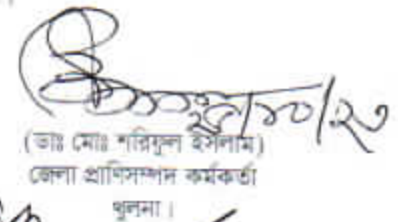 (ডাঃ মোঃ শরিফুল ইসলাম)
জেলা প্রাণিসম্পদ কর্মকর্তা
খুলনা।